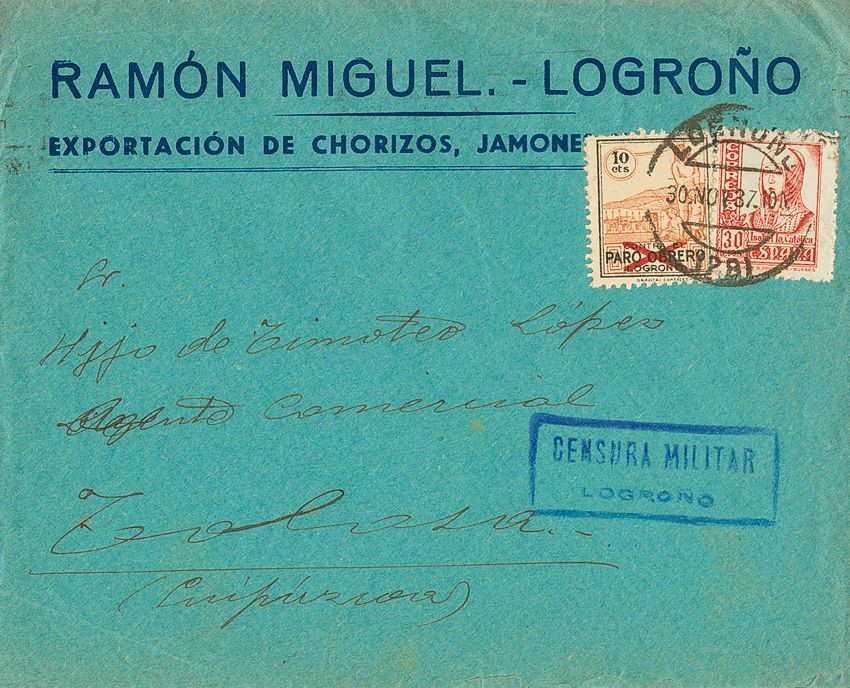 RAMÓN MIGUEL. - LOGROÑO
EXPORTACIÓN DE CHORIZOS, JAMONES
10
cts
CONTRA EL
PARO OBRERO
LOGROÑO
CORREOS
30
Isabel la Católica
ESPAÑA
LOGROÑO
30.NOV.37.10
Sr.
Hijo de Timoteo López
Agente Comercial
Tolosa.-
(Guipúzcoa)
CENSURA MILITAR
LOGROÑO